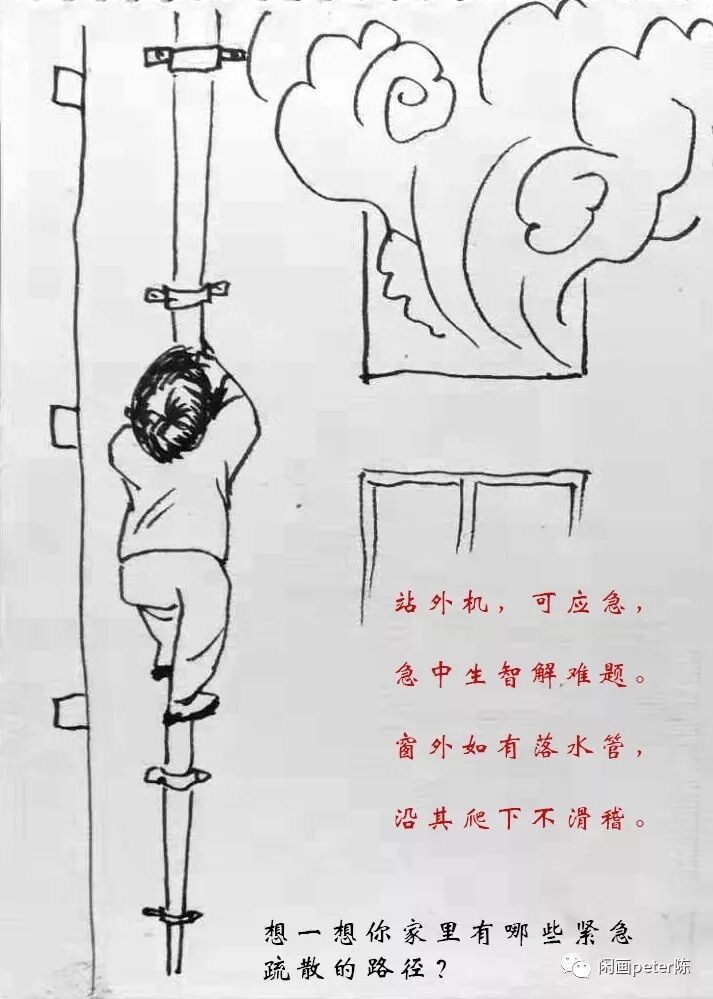 站外机，可应急，
急中生智解难题。
窗外如有落水管，
沿其爬下不滑稽。
想一想你家里有哪些紧急
疏散的路径？
闲画peter陈